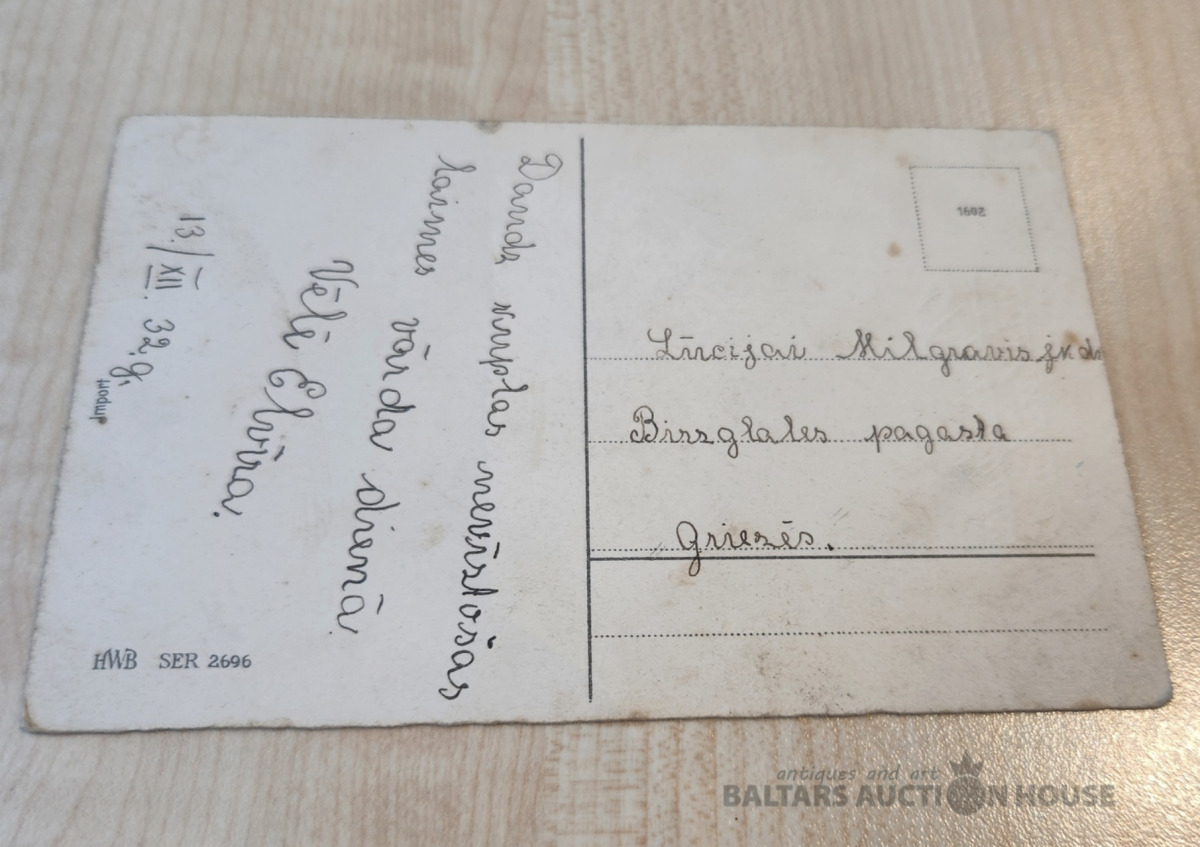 Daudz kuplas nevīstošas
laimes vārda dienā
Vēlē Elvīra.
13./XII. 32.g.
Import
HWB SER 2696
1602
Lūcijai Milgravis jkdz
Birzgales pagasta
Griezēs.
antiques and art
BALTARS AUCTION HOUSE